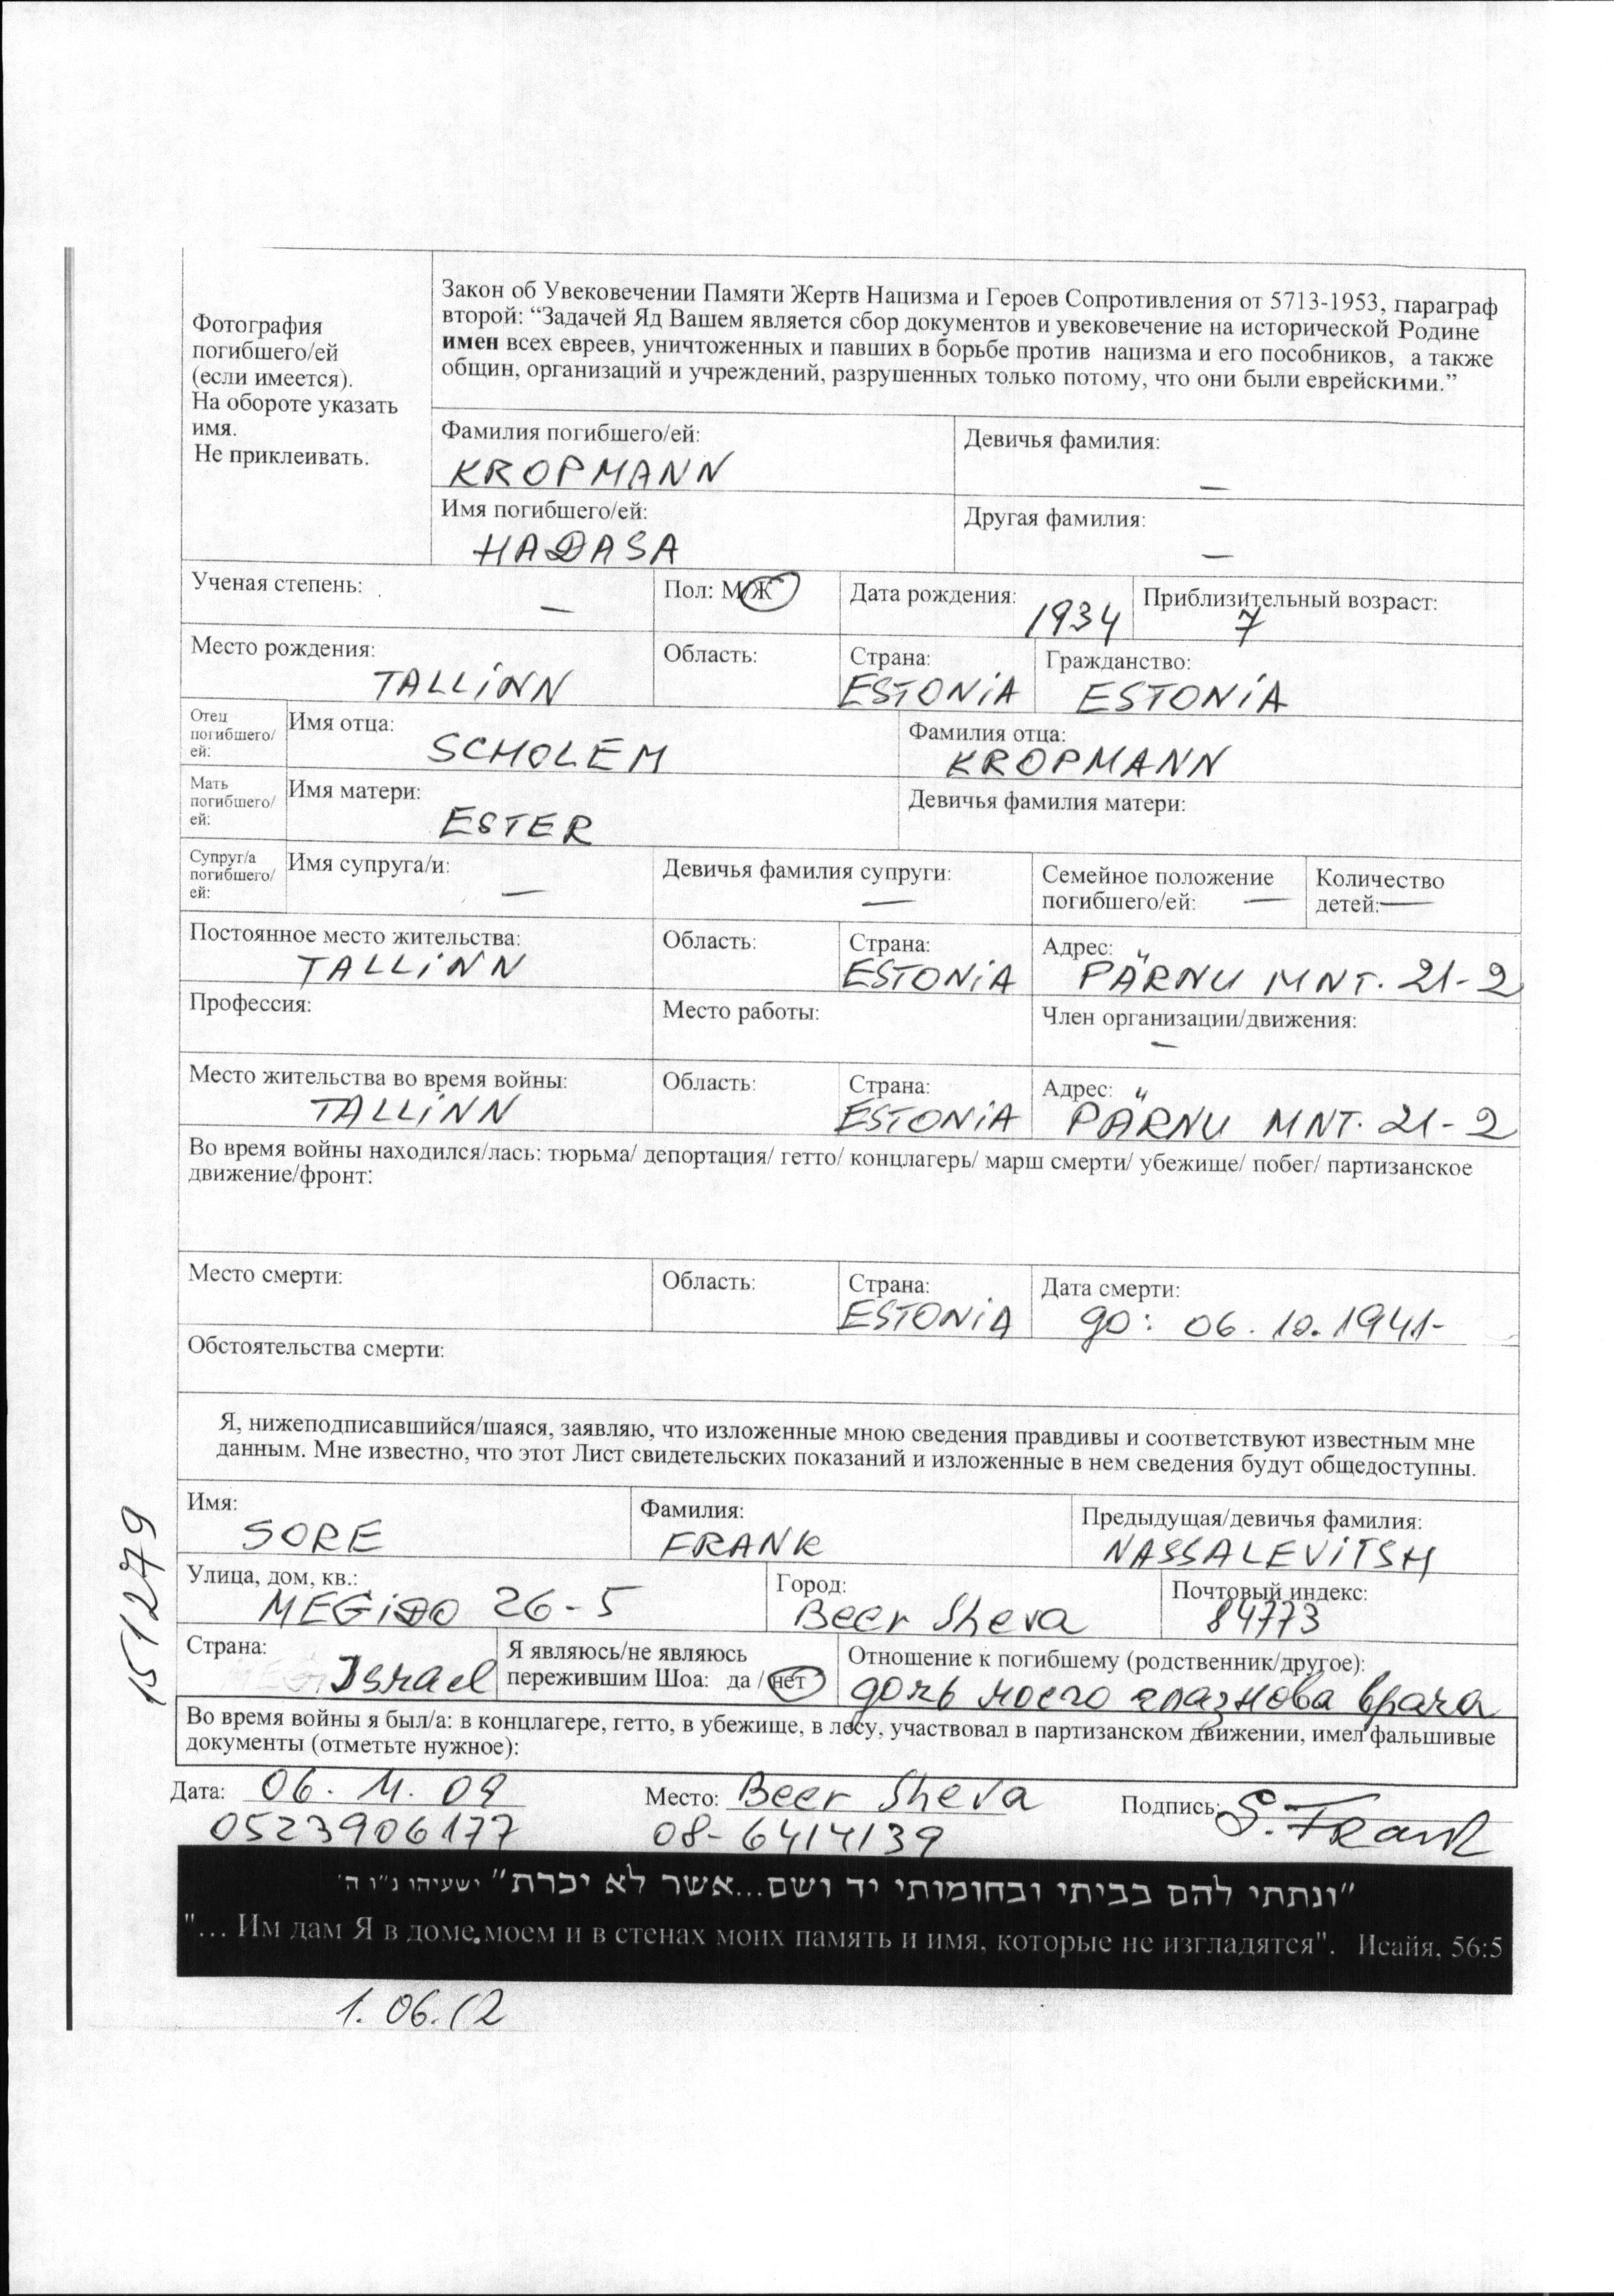 Закон об Увековечении Памяти Жертв Нацизма и Героев Сопротивления от 5713-1953, параграф
второй: “Задачей Яд Вашем является сбор документов и увековечение на исторической Родине
имен всех евреев, уничтоженных и павших в борьбе против нацизма и его пособников, а также
общин, организаций и учреждений, разрушенных только потому, что они были еврейскими.”
Фотография
погибшего/ей
(если имеется).
На обороте указать
имя.
Не приклеивать.
Фамилия погибшего/ей: Девичья фамилия:
KROPMANN —
Имя погибшего/ей: Другая фамилия:
HADASA —
Ученая степень: — Пол: М/Ж Дата рождения: 1934 Приблизительный возраст: 7
Место рождения: Область: Страна: Гражданство:
TALLiNN ESTONiA ESTONiA
Отец
погибшего/
ей:
Имя отца: Фамилия отца:
SCHOLEM KROPMANN
Мать
погибшего/
ей:
Имя матери: Девичья фамилия матери:
ESTER
Супруг/а
погибшего/
ей:
Имя супруга/и: — Девичья фамилия супруги: —
Семейное положение
погибшего/ей: —
Количество
детей: —
Постоянное место жительства: Область: Страна: Адрес:
TALLiNN ESTONiA PÄRNU MNT. 21-2
Профессия: Место работы: Член организации/движения:
—
Место жительства во время войны: Область: Страна: Адрес:
TALLiNN ESTONiA PÄRNU MNT. 21-2
Во время войны находился/лась: тюрьма/ депортация/ гетто/ концлагерь/ марш смерти/ убежище/ побег/ партизанское
движение/фронт:
Место смерти: Область: Страна: Дата смерти:
ESTONiA до: 06.10.1941-
Обстоятельства смерти:
Я, нижеподписавшийся/шаяся, заявляю, что изложенные мною сведения правдивы и соответствуют известным мне
данным. Мне известно, что этот Лист свидетельских показаний и изложенные в нем сведения будут общедоступны.
Имя: Фамилия: Предыдущая/девичья фамилия:
SORE FRANK NASSALEViTSH
Улица, дом, кв.: Город: Почтовый индекс:
MEGiDO 26-5 Beer Sheva 84773
Страна:
Israel
Я являюсь/не являюсь
пережившим Шоа: да / нет
Отношение к погибшему (родственник/другое):
дочь моего глазнова врача
Во время войны я был/а: в концлагере, гетто, в убежище, в лесу, участвовал в партизанском движении, имел фальшивые
документы (отметьте нужное):
Дата: 06. 11. 09 Место: Beer Sheva Подпись: S. Frank
0523906177 08-6414139
"ונתתי להם בביתי ובחומותי יד ושם...אשר לא יכרת" ישעיהו נ"ו ה'
"... Им дам Я в доме моем и в стенах моих память и имя, которые не изгладятся". Исайя, 56:5
1.06.12
151279